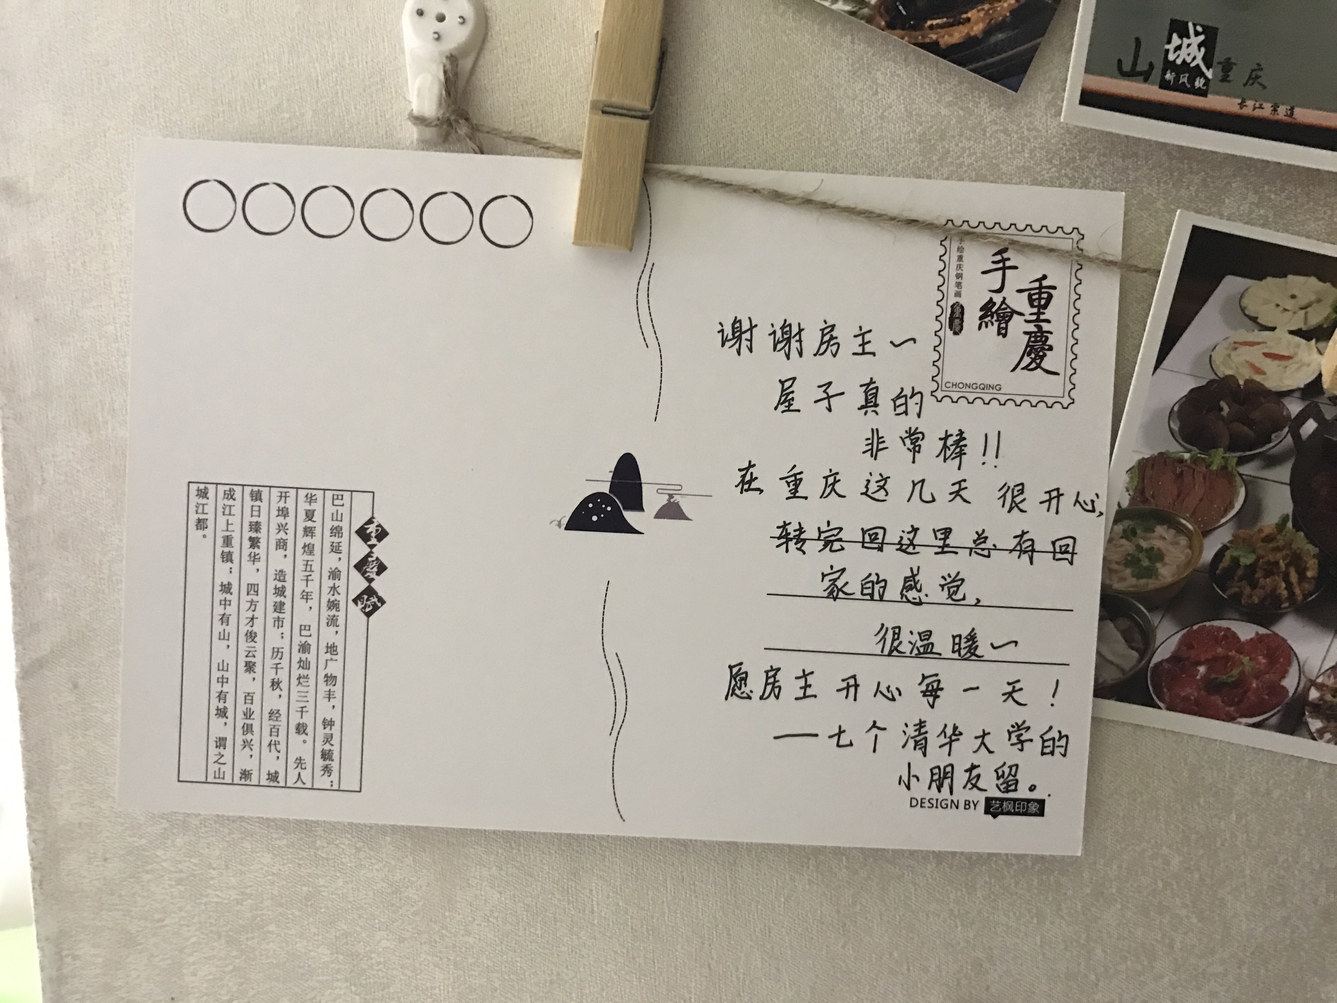 山城重庆
新风貌
长江索道
手绘重庆钢笔画
手繪
重慶
CHONGQING
谢谢房主~
屋子真的
非常棒!!
在重庆这几天 很开心,
转完回这里总有回
家的感觉,
很温暖~
愿房主开心每一天!
——七个清华大学的
小朋友留。
DESIGN BY 艺枫印象
重慶賦
巴山绵延，渝水婉流，地广物丰，钟灵毓秀；
华夏辉煌五千年，巴渝灿烂三千载。先人
开埠兴商，造城建市；历千秋，经百代，城
镇日臻繁华，四方才俊云聚，百业俱兴，渐
成江上重镇；城中有山，山中有城，谓之山
城江都。